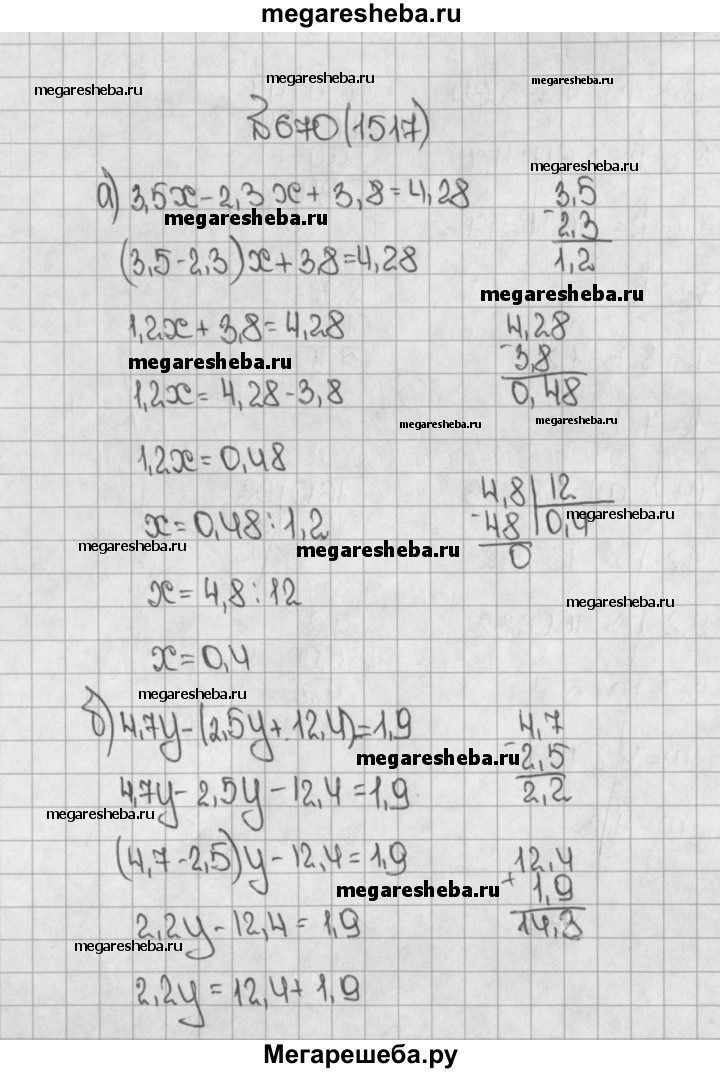 megaresheba.ru
megaresheba.ru
megaresheba.ru
megaresheba.ru
№ 670 (1517)
megaresheba.ru
а) 3,5x - 2,3x + 3,8 = 4,28
3,5
megaresheba.ru
- 2,3
(3,5 - 2,3)x + 3,8 = 4,28
1,2
megaresheba.ru
1,2x + 3,8 = 4,28
4,28
megaresheba.ru
- 3,8
1,2x = 4,28 - 3,8
0,48
megaresheba.ru
megaresheba.ru
1,2x = 0,48
4,8 | 12
x = 0,48 : 1,2
- 48 | 0,4
megaresheba.ru
megaresheba.ru
megaresheba.ru
0
x = 4,8 : 12
megaresheba.ru
x = 0,4
megaresheba.ru
б) 4,7y - (2,5y + 12,4) = 1,9
4,7
megaresheba.ru
- 2,5
4,7y - 2,5y - 12,4 = 1,9
2,2
megaresheba.ru
(4,7 - 2,5)y - 12,4 = 1,9
12,4
megaresheba.ru
+ 1,9
2,2y - 12,4 = 1,9
14,3
megaresheba.ru
2,2y = 12,4 + 1,9
Мегарешеба.ру